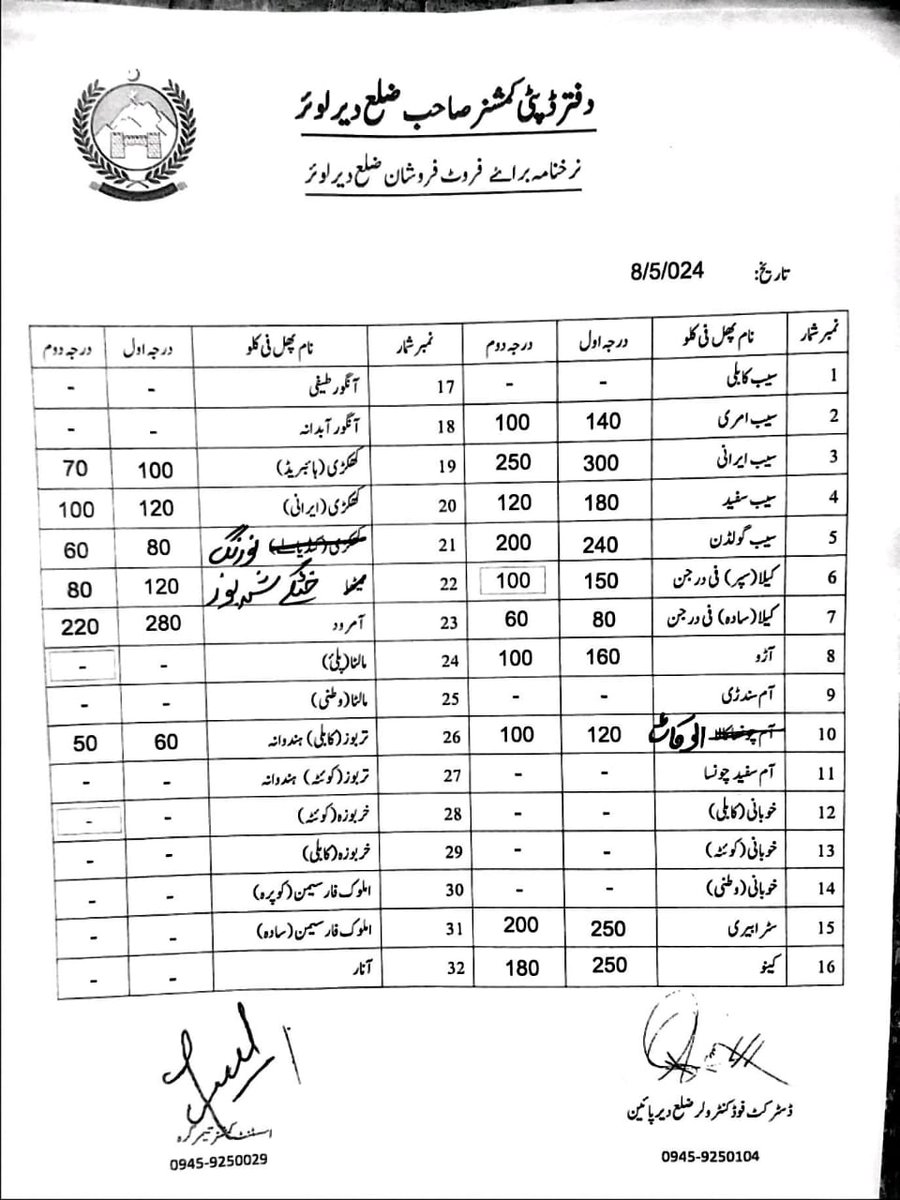 دفتر ڈپٹی کمشنر صاحب ضلع دیر لوئر
نرخنامہ برائے فروٹ فروشان ضلع دیر لوئر
تاریخ: 8/5/024
نمبر شمار نام پھل فی کلو درجہ اول درجہ دوم نمبر شمار نام پھل فی کلو درجہ اول درجہ دوم
1 سیب کابلی - - 17 آنگور طیفی - -
2 سیب امری 140 100 18 آنگور آبدانہ - -
3 سیب ایرانی 300 250 19 ککڑی (ہائبریڈ) 100 70
4 سیب سفید 180 120 20 ککڑی (ایرانی) 120 100
5 سیب گولڈن 240 200 21 80 60
6 کیلا (سپر) فی درجن 150 100 22 میٹھا 120 80
7 کیلا (سادہ) فی درجن 80 60 23 آمرود 280 220
8 آڑو 160 100 24 مالٹا (پلئ) - -
9 آم سندڑی - - 25 مالٹا (وطنی) - -
10 آم چونسا کالا الوکاٹ 120 100 26 تربوز (کابلی) ہندوانہ 60 50
11 آم سفید چونسا - - 27 تربوز (کوئٹہ) ہندوانہ - -
12 خوبانی (کابلی) - - 28 خربوزہ (کوئٹہ) - -
13 خوبانی (کوئٹہ) - - 29 خربوزہ (کابلی) - -
14 خوبانی (وطنی) - - 30 املوک فارسیمن (کوپرہ) - -
15 سٹرابیری 250 200 31 املوک فارسیمن (سادہ) - -
16 کینو 250 180 32 آنار - -
ڈسٹرکٹ فوڈ کنٹرولر ضلع دیر پائین
0945-9250104
اسسٹنٹ کمشنر تیمرگرہ
0945-9250029